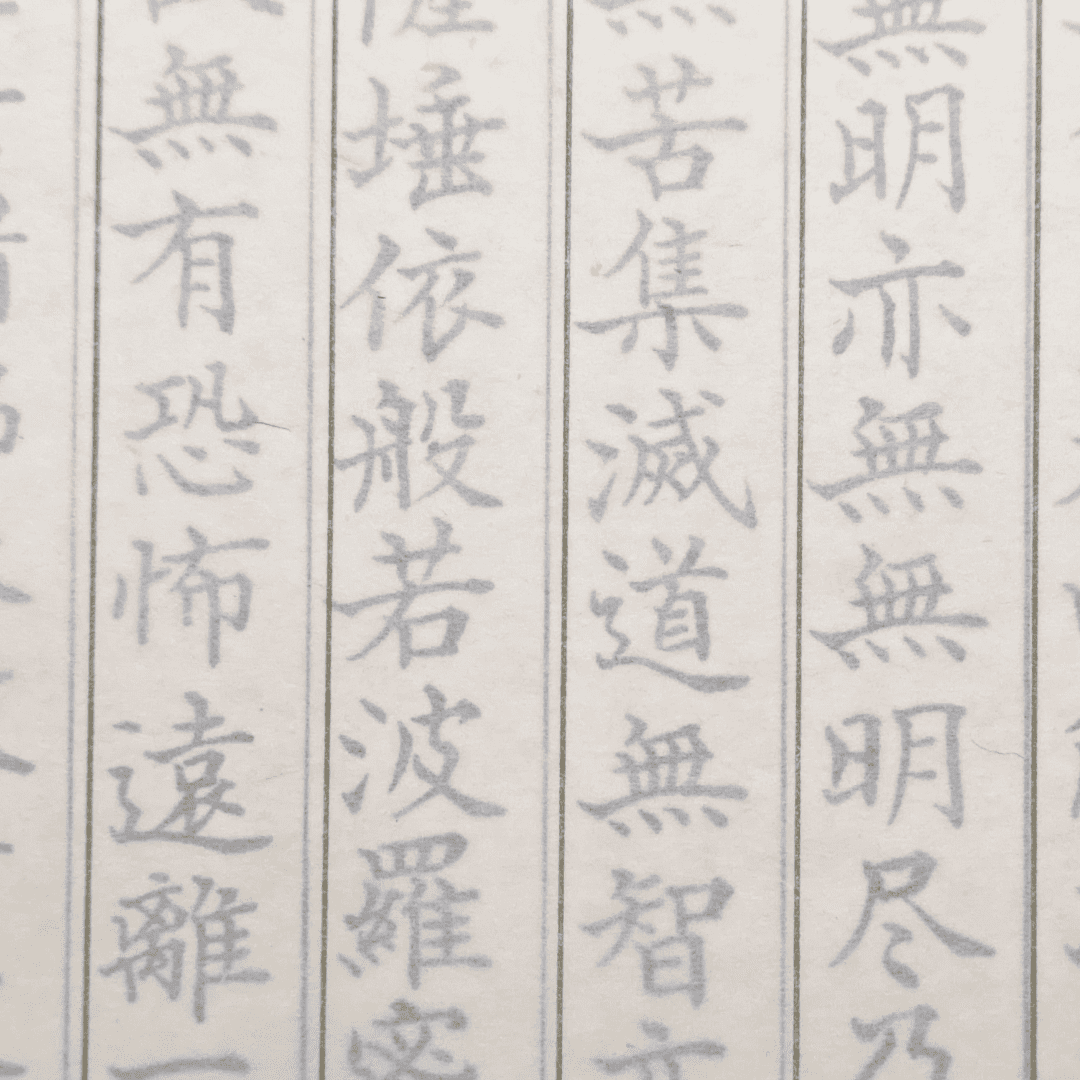 無明亦無無明尽乃
無苦集滅道無智亦
薩埵依般若波羅
無有恐怖遠離一